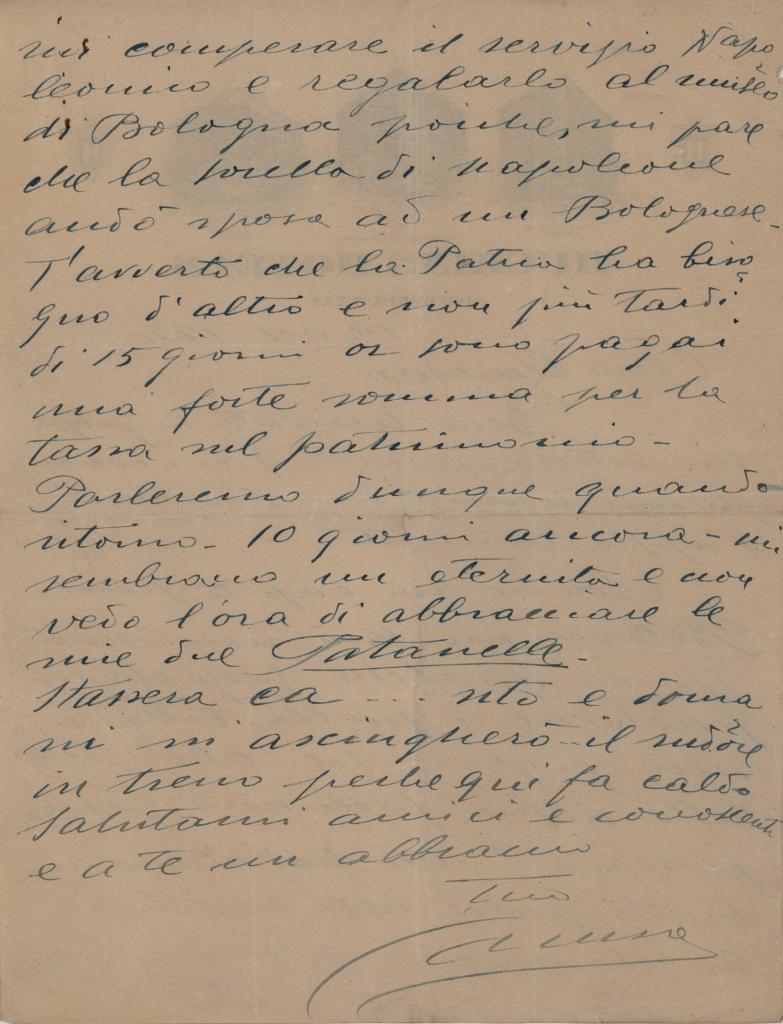 mi comperare il servizio Napo
leonico e regalarlo al museo
di Bologna poiche, mi pare
che la sorella di Napoleone
andò sposa ad un Bolognese_
T'avverto che la Patria ha biso
gno d'altro e non più tardi
di 15 giorni or sono pagai
una forte somma per la
tassa sul patrimonio_
Parleremo dunque quando
ritorno_ 10 giorni ancora_ mi
sembrano un eternita e non
vedo l'ora di abbracciare le
mie due Patanelle_
Stassera ca ... nto e doma
ni mi asciugherò il sudore
in treno perche qui fa caldo
Salutami amici e conoscenti
e a te un abbraccio
Tuo
Caruso